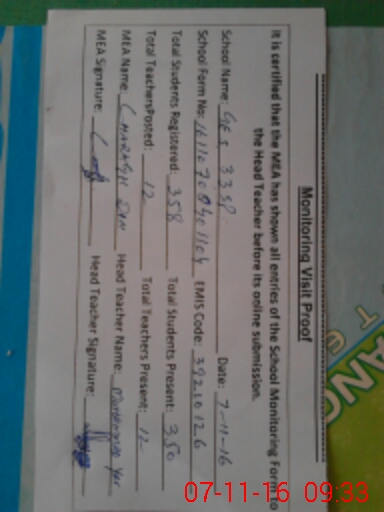 Monitoring Visit Proof
It is certified that the MEA has shown all entries of the School Monitoring Form to
the Head Teacher before its online submission.
School Name: GES 33SP Date: 7-11-16
School Form No: EMIS Code: 39210126
Total Students Registered: 358 Total Students Present: 350
Total TeachersPosted: 12 Total Teachers Present: 12
MEA Name: Head Teacher Name:
MEA Signature: Head Teacher Signature:
07-11-16 09:33